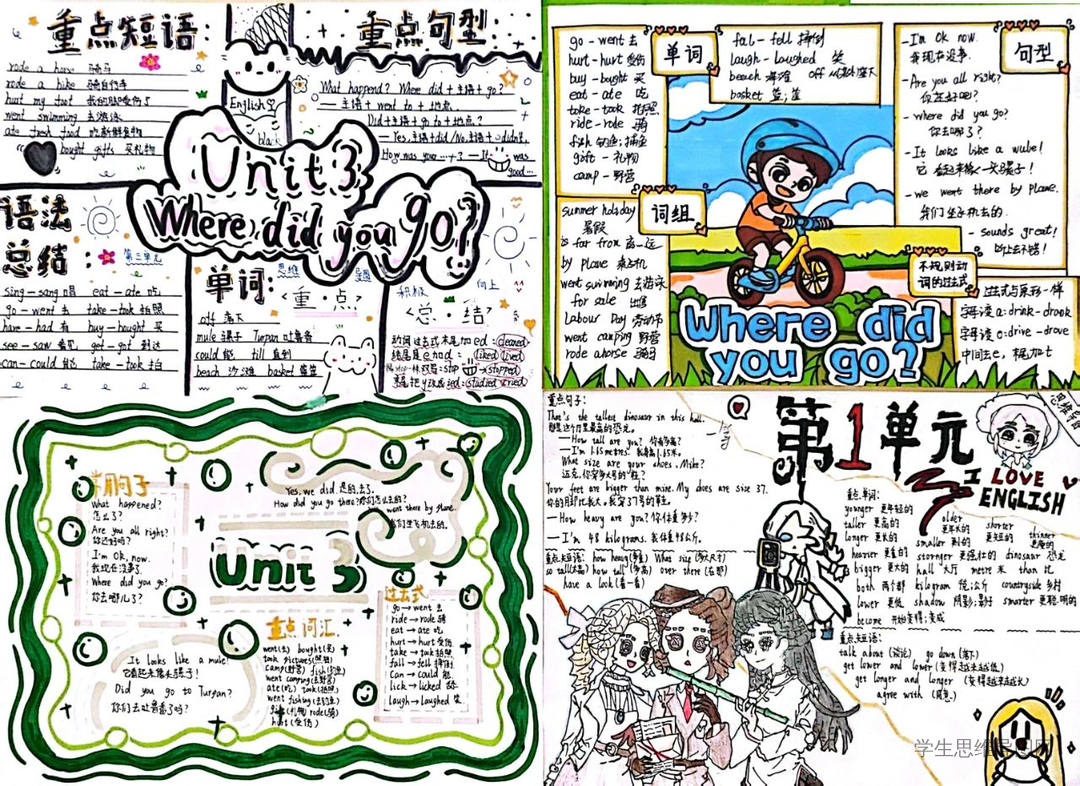 重点短语:
rode a horse 骑马
rode a bike 骑自行车
hurt my foot 我的脚受伤了
went swimming 去游泳
ate fresh food 吃新鲜食物
bought gifts 买礼物
English
black
重点句型:
What happend? Where did+主语+go?
—主语+went to+地点.
Did+主语+go to+地点?
—Yes,主语+did/No,主语+didn't.
How was your …+? —It was
good…
Unit 3
Where did you go?
语法
总结:
第三单元
sing—sang 唱 eat—ate 吃
go—went 去 take—took 拍照
have—had 有 buy—bought 买
see—saw 看见 get—got 到达
can—could 能 take—took 拍
单词:
思维
导图
<重·点>
off 落下
mule 骡子 Turpan 吐鲁番
could 能 till 直到
beach 沙滩 basket 篮筐
积极
向上
<总·结>
动词过去式末尾加ed: cleaned
结尾是e加d: liked lived
stop→stopped
studied cried
go—went 去
hurt—hurt 受伤
buy—bought 买
eat—ate 吃
take—took 拍照
ride—rode 骑
fish 钓鱼;捕鱼
gift—礼物
camp—野营
单词
fall—fell 摔倒
laugh—laughed 笑
beach 海滩 off
basket 篮;筐
句型
-I'm OK now.
我现在没事.
-Are you all right?
你还好吧?
-where did you go?
你去哪了?
-It looks like a mule!
它看起来像一头骡子!
-we went there by plane.
我们坐飞机去的.
-sounds great!
听上去不错!
词组
summer holiday
暑假
is far from 离…远
by plane 乘飞机
went swimming 去游泳
for sale 出售
Labour Day 劳动节
went camping 野营
rode a horse 骑马
不规则动
词的过去式
过去式与原形一样
字母i变a: drink-drank
字母i变o: drive-drove
中间去e,末尾加t
Where did
you go?
常用句子
What happened?
怎么了?
Are you all right?
你还好吗?
I'm OK, now.
我现在没事了.
Where did you go?
你去哪儿了?
Yes, we did. 是的,去了.
How did you go there? 你们怎么去的?
went there by plane.
我们坐飞机去的.
Unit 3
重点词汇
went(去) bought(买)
took pictures(照相)
camp(野营) fish(钓鱼)
went camping(去野营)
ate(吃) took(拍照)
went fishing(去钓鱼)
gift(礼物) rode(骑)
hurt(受伤)
过去式
go→went 去
ride→rode 骑
eat→ate 吃
hurt→hurt 受伤
take→took 拍照
fall→fell 摔倒
Can→could 能
lick→licked 舔
laugh→laughed 笑
It looks like a mule!
它看起来像头骡子!
Did you go to Turpan?
你们去吐鲁番了吗?
重点句子:
That's the tallest dinosaur in this hall.
那是这个厅里最高的恐龙.
—How tall are you? 你有多高?
—I'm 1.65 metres. 我身高1.65米.
What size are your shoes, Mike?
迈克,你穿多大号的鞋?
Your feet are bigger than mine. My shoes are size 37.
你的脚比我大。我穿37号的鞋.
—How heavy are you? 你体重多少?
—I'm 48 kilograms. 我体重48公斤.
重点短语: how heavy(多重) What size(多大尺寸)
how tall(多高) over there(在那)
have a look(看一看)
第1单元
思维导图
I LOVE
ENGLISH
重点单词:
younger 更年轻的
older 更年长的
shorter 更矮的
taller 更高的
longer 更长的
smaller 更小的
thinner 更瘦的
heavier 更重的
stronger 更强壮的 dinosaur 恐龙
bigger 更大的 hall 大厅 metre 米 than 比
both 两个都 kilogram 千克;公斤 countryside 乡村
lower 更低 shadow 阴影;影子 smarter 更聪明的
become 开始变得;变成
重点短语:
talk about (谈论) go down (落下)
get lower and lower (变得越来越低)
get longer and longer (变得越来越长)
agree with (同意)
学生思维导图